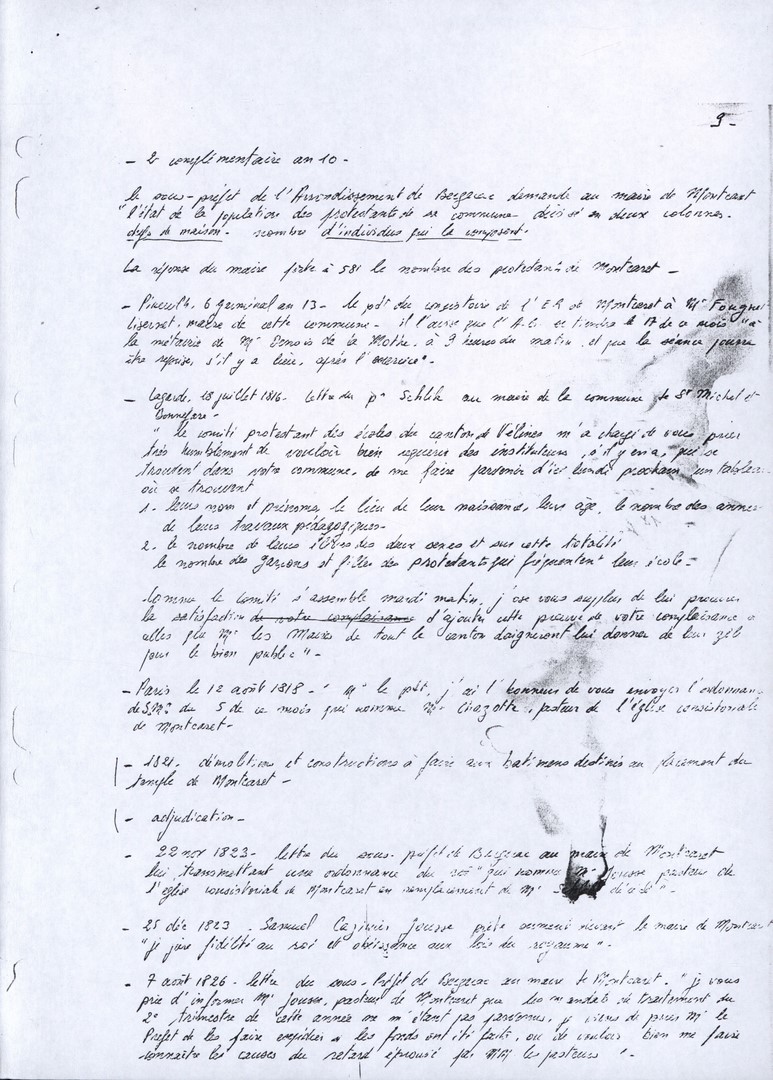 9-
- 2e complémentaire an 10 -
le sous-préfet de l'Arrondissement de Bergerac demande au maire de Montcaret
"l'état de la population des protestants de sa commune divisé en deux colonnes-
chefs de maison - nombre d'individus qui le composent.
La réponse du maire fixe à 581 le nombre des protestants de Montcaret -
- 6 germinal an 13 - le pdt du consistoire de l'E R de Montcaret à Mr
maire de cette commune - il l'avise que l'A.C. se tiendra le 17 de ce mois "à
la métairie de Mr de la Mothe, à 9 heures du matin, et que la séance pourra
être reprise, s'il y a lieu, après l'exercice" -
- Lagarde, 18 juillet 1816 - lettre du pr au maire de la commune de St Michel et
Bonnefare -
" le comité protestant des écoles du canton de Vélines m'a chargé de vous prier
très humblement de vouloir bien requérir des instituteurs, s'il y en a, qui se
trouvent dans votre commune, de me faire parvenir d'ici lundi prochain un tableau
où se trouvent
1 - leurs nom et prénoms, le lieu de leur naissance, leur âge, le nombre des années
de leurs travaux pédagogiques -
2 - le nombre de leurs élèves des deux sexes et sur cette totalité
le nombre des garçons et filles des protestants qui fréquentent leur école -
Comme le comité s'assemble mardi matin, j'ose vous supplier de lui procurer
la satisfaction de votre complaisance d'ajouter cette preuve de votre complaisance à
celles que Mrs les Maires de tout le canton daigneront lui donner de leur zèle
pour le bien public" -
- Paris le 12 août 1818 - " Mr le pdt, j'ai l'honneur de vous envoyer l'ordonnance
de du 5 de ce mois qui nomme Mr Chazotte, pasteur de l'église consistoriale
de Montcaret -
- 1821 - démolition et constructions à faire aux batimens destinés au placement du
temple de Montcaret -
- adjudication -
- 22 nov 1823 - lettre du sous-préfet de Bergerac au maire de Montcaret
lui transmettant une ordonnance du roi "qui nomme Mr Jousse pasteur de
l'église consistoriale de Montcaret en remplacement de Mr décédé" -
- 25 déc 1823 - Samuel Jousse prête serment devant le maire de Montcaret
"je jure fidélité au roi et obéissance aux lois du royaume" -
- 7 août 1826 - lettre du sous-Préfet de Bergerac au maire de Montcaret - "je vous
prie d'informer Mr Jousse, pasteur de Montcaret que les mandats de traitement du
2e trimestre de cette année ne m'étant pas parvenus, je viens de prier Mr le
Préfet de les faire expédier si les fonds ont été faits, ou de vouloir bien me faire
connaître les causes du retard éprouvé par MM les pasteurs" -